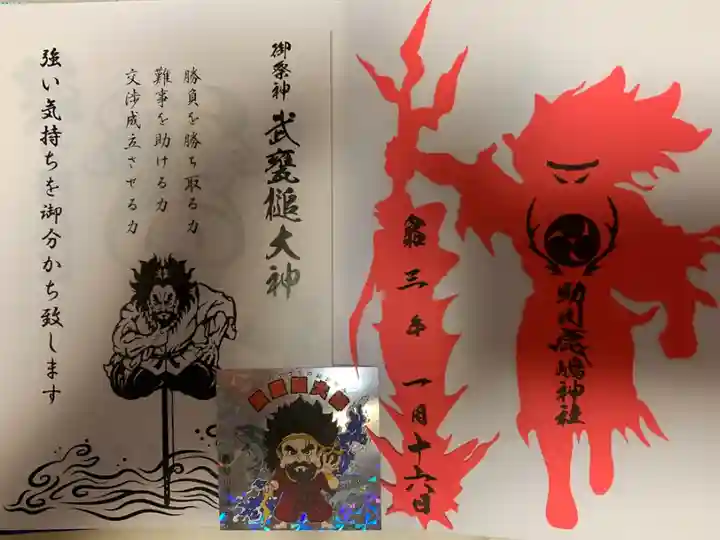 御祭神
武甕槌大神
勝負を勝ち取る力
難事を助ける力
交渉成立させる力
強い気持ちを御分かち致します
三年
一月十六日
鹿嶋神社